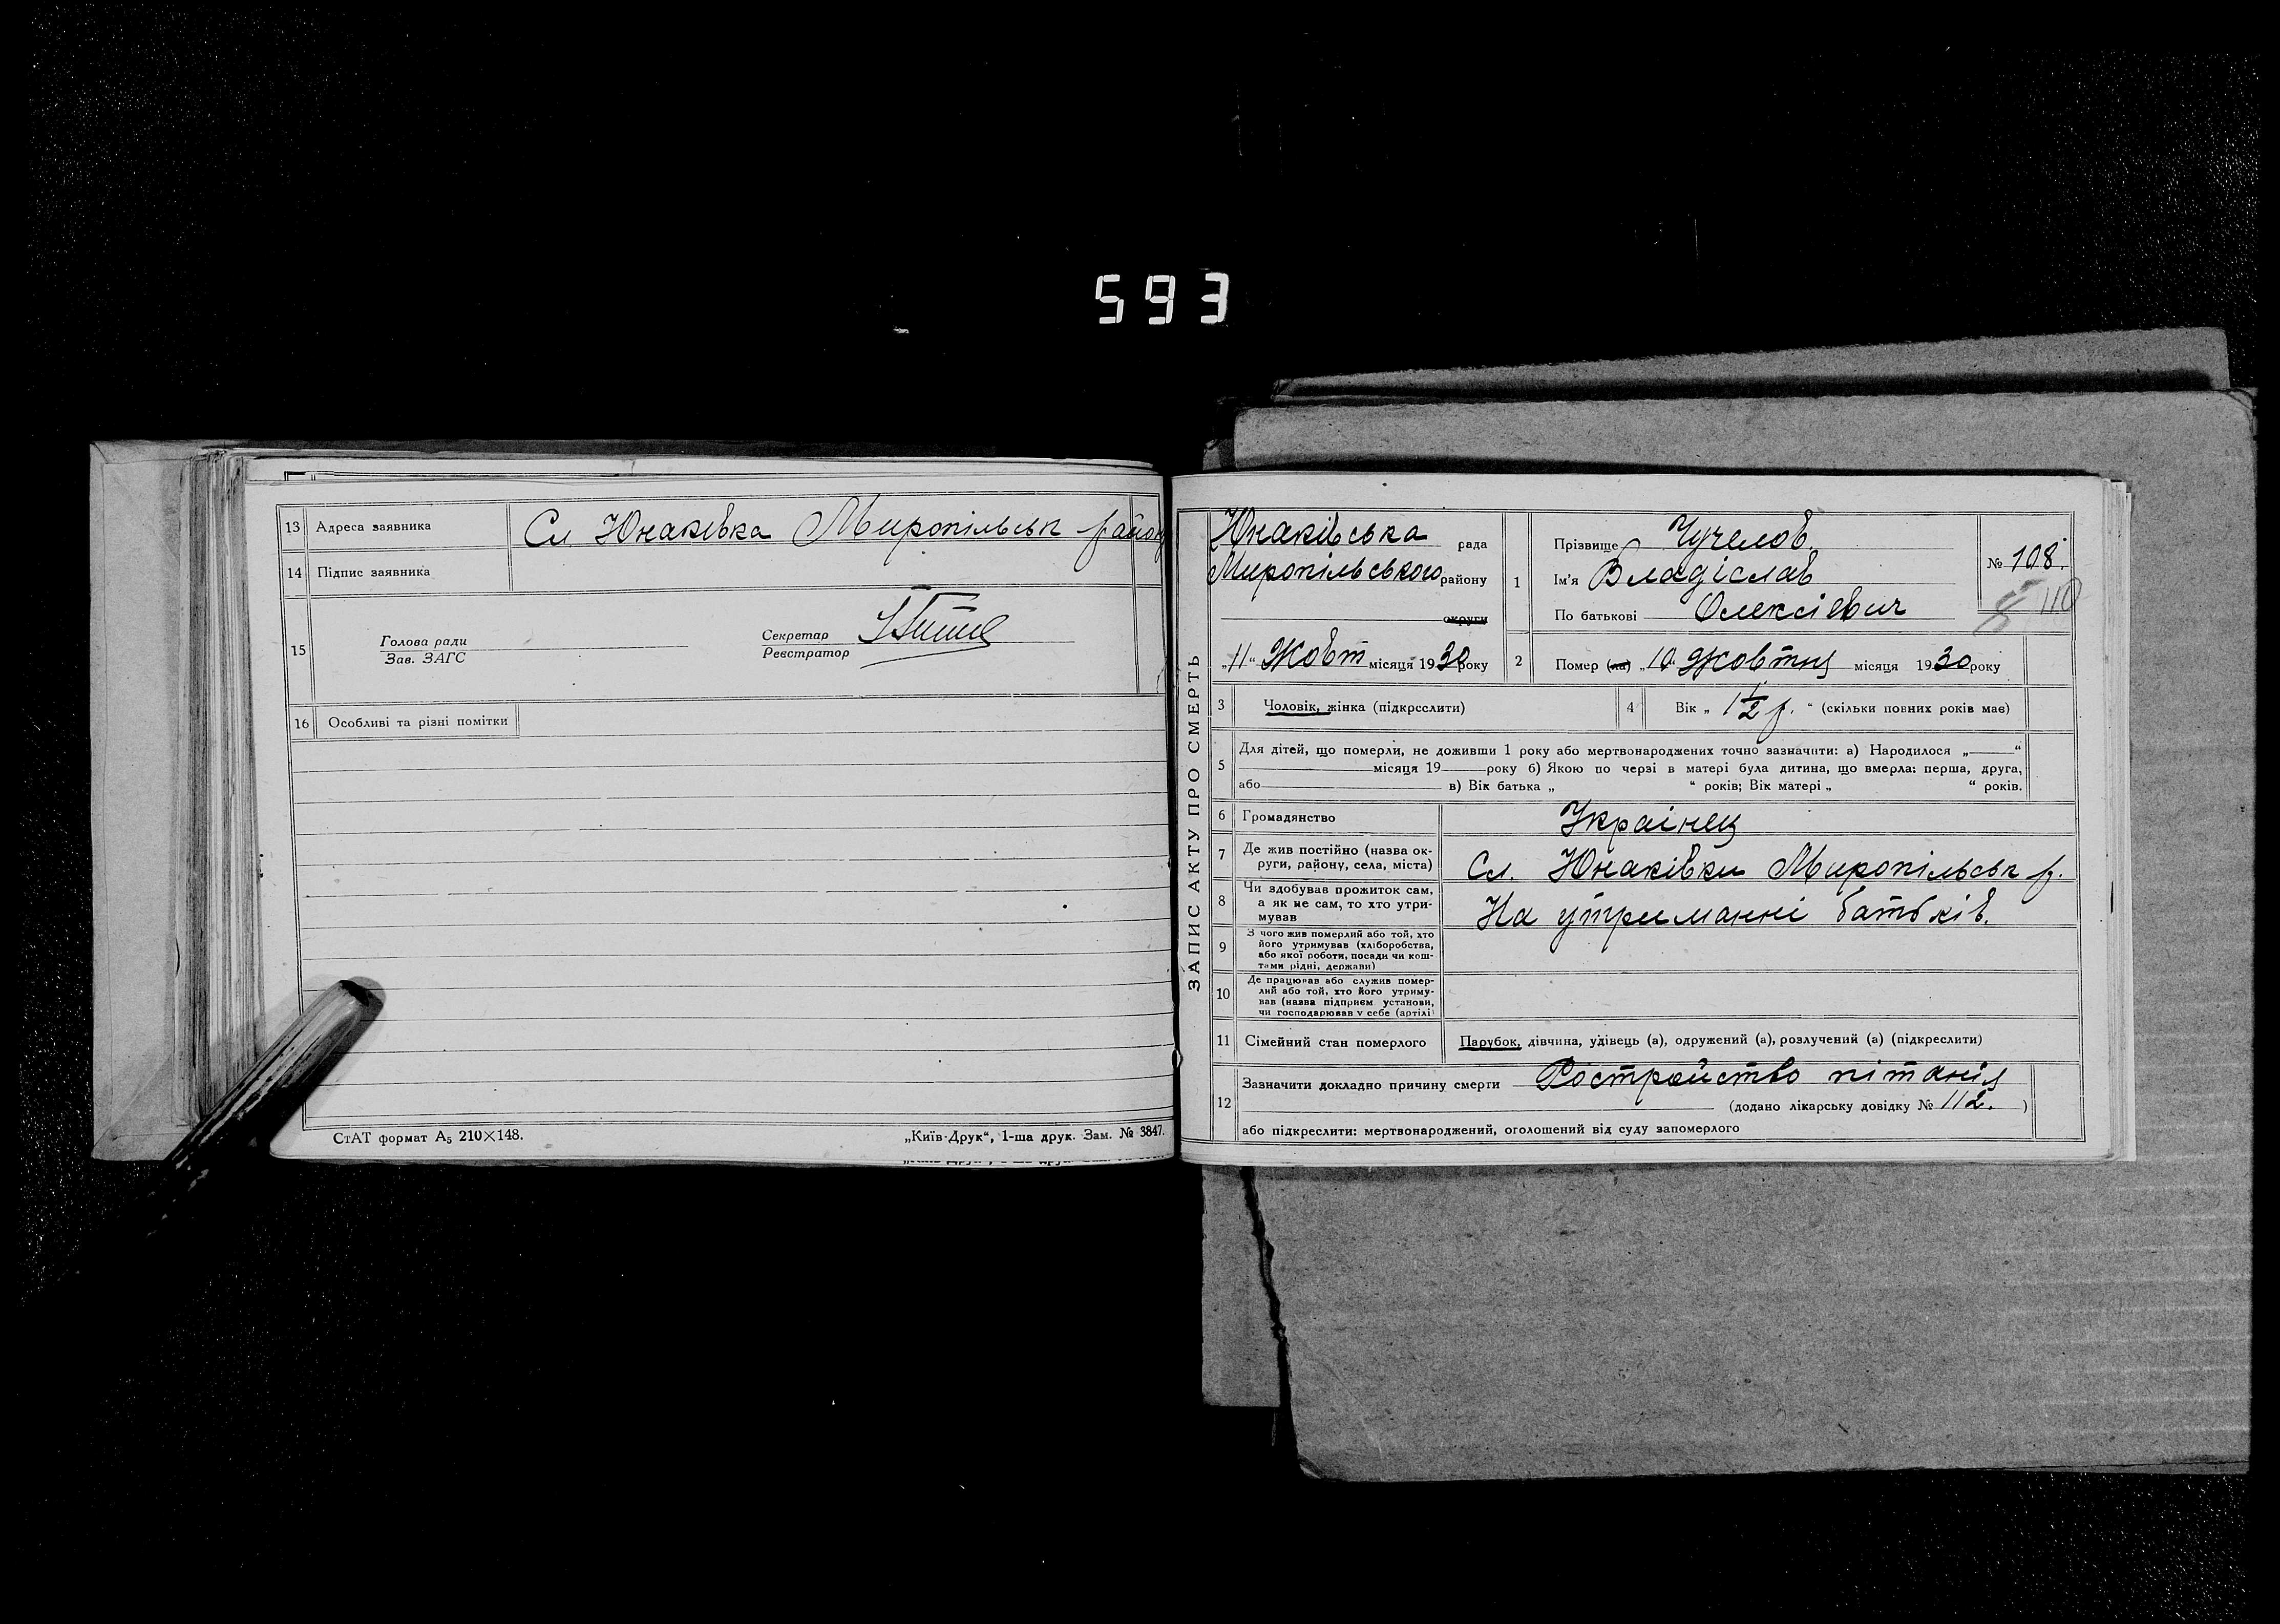 593
13 Адреса заявника Сл. Юнаківка Миропільськ район
14 Підпис заявника
15 Голова ради
Зав. ЗАГС
Секретар
Реєстратор
16 Особливі та різні помітки
СтАТ формат А₅ 210×148. „Київ-Друк“, 1-ша друк. Зам. № 3847.
ЗАПИС АКТУ ПРО СМЕРТЬ
Юнаківська рада
Миропільського району
округи
„11“ Жовт місяця 1930 року
1 Прізвище Чучелов
Ім'я Владіслав
По батькові Олексієвич
№ 108.
110
2 Помер (ла) „10“ Жовтня місяця 1930 року
3 Чоловік, жінка (підкреслити)
4 Вік „ 1 1/2 р. “ (скільки повних років має)
5 Для дітей, що померли, не доживши 1 року або мертвонароджених точно зазначити: а) Народилося „ “
місяця 19 року б) Якою по черзі в матері була дитина, що вмерла: перша, друга,
або в) Вік батька „ “ років; Вік матері „ “ років.
6 Громадянство Українец
7 Де жив постійно (назва ок-
руги, району, села, міста) Сл. Юнаківки Миропільськ р.
8 Чи здобував прожиток сам,
а як не сам, то хто утри-
мував На утриманні батьків.
9 З чого жив померлий або той, хто
його утримував (хліборобства,
або якої роботи, посади чи кош-
тами рідні, держави)
10 Де працював або служив помер-
лий або той, хто його утриму-
вав (назва підприєм установи,
чи господарював у себе (артілі)
11 Сімейний стан померлого Парубок, дівчина, удівець (а), одружений (а), розлучений (а) (підкреслити)
12 Зазначити докладно причину смерти Ростройство пітанія
(додано лікарську довідку № 112. )
або підкреслити: мертвонароджений, оголошений від суду запомерлого